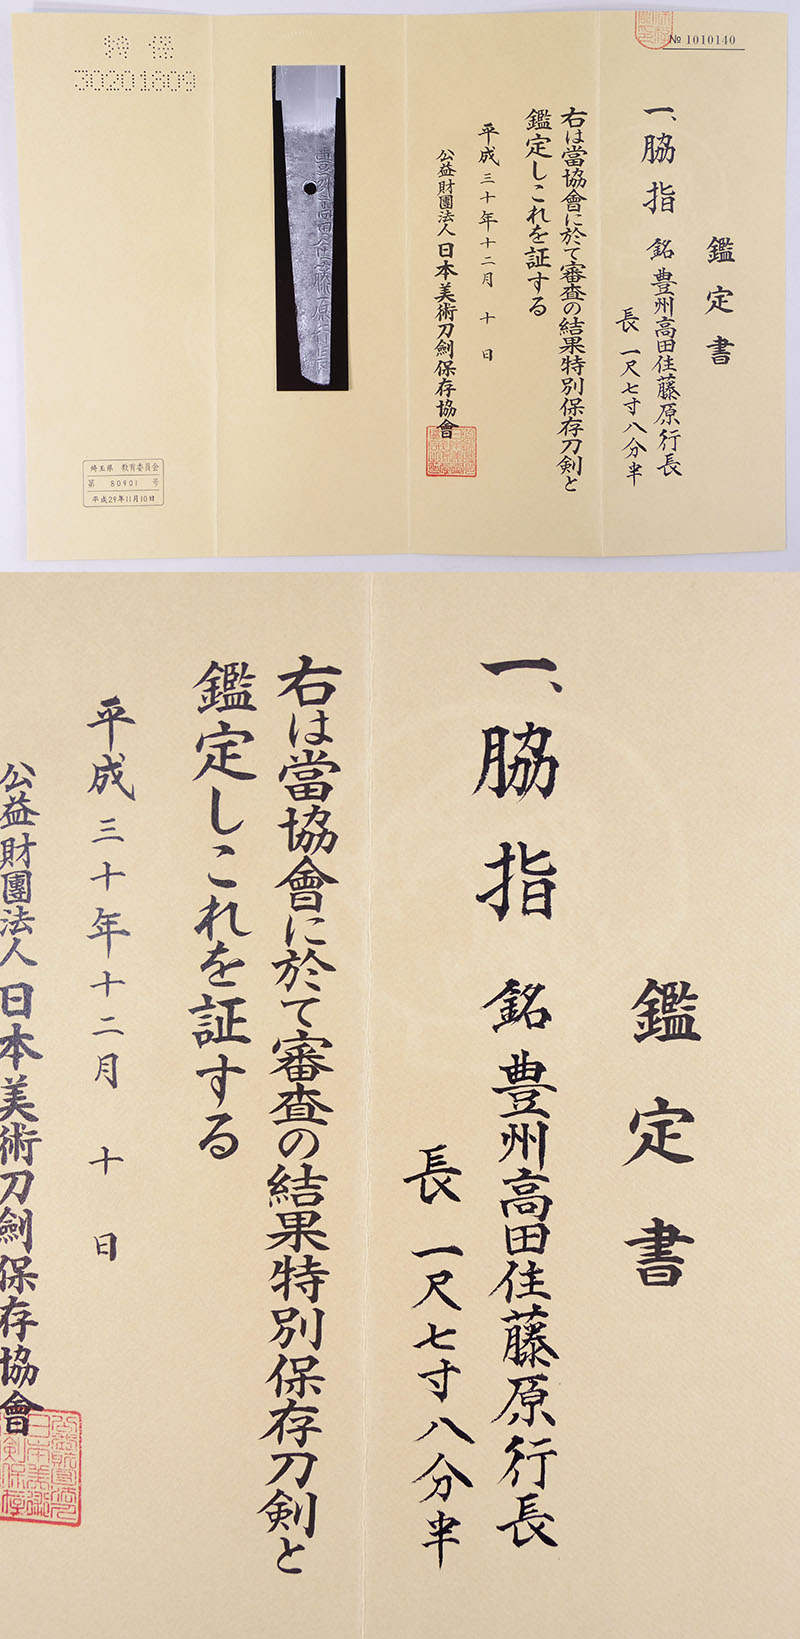 № 1010140
鑑定書
一、脇指 銘 豊州高田住藤原行長
長 一尺七寸八分半
右は當協會に於て審査の結果特別保存刀剣と
鑑定しこれを証する
平成三十年十二月 十 日
公益財團法人日本美術刀劍保存協會
豊州高田住藤原行長
特 保
30201809
埼玉県 教育委員会
第 80901 号
平成29年11月10日
鑑定書
一、脇指 銘 豊州高田住藤原行長
長 一尺七寸八分半
右は當協會に於て審査の結果特別保存刀剣と
鑑定しこれを証する
平成三十年十二月 十 日
公益財團法人日本美術刀劍保存協會